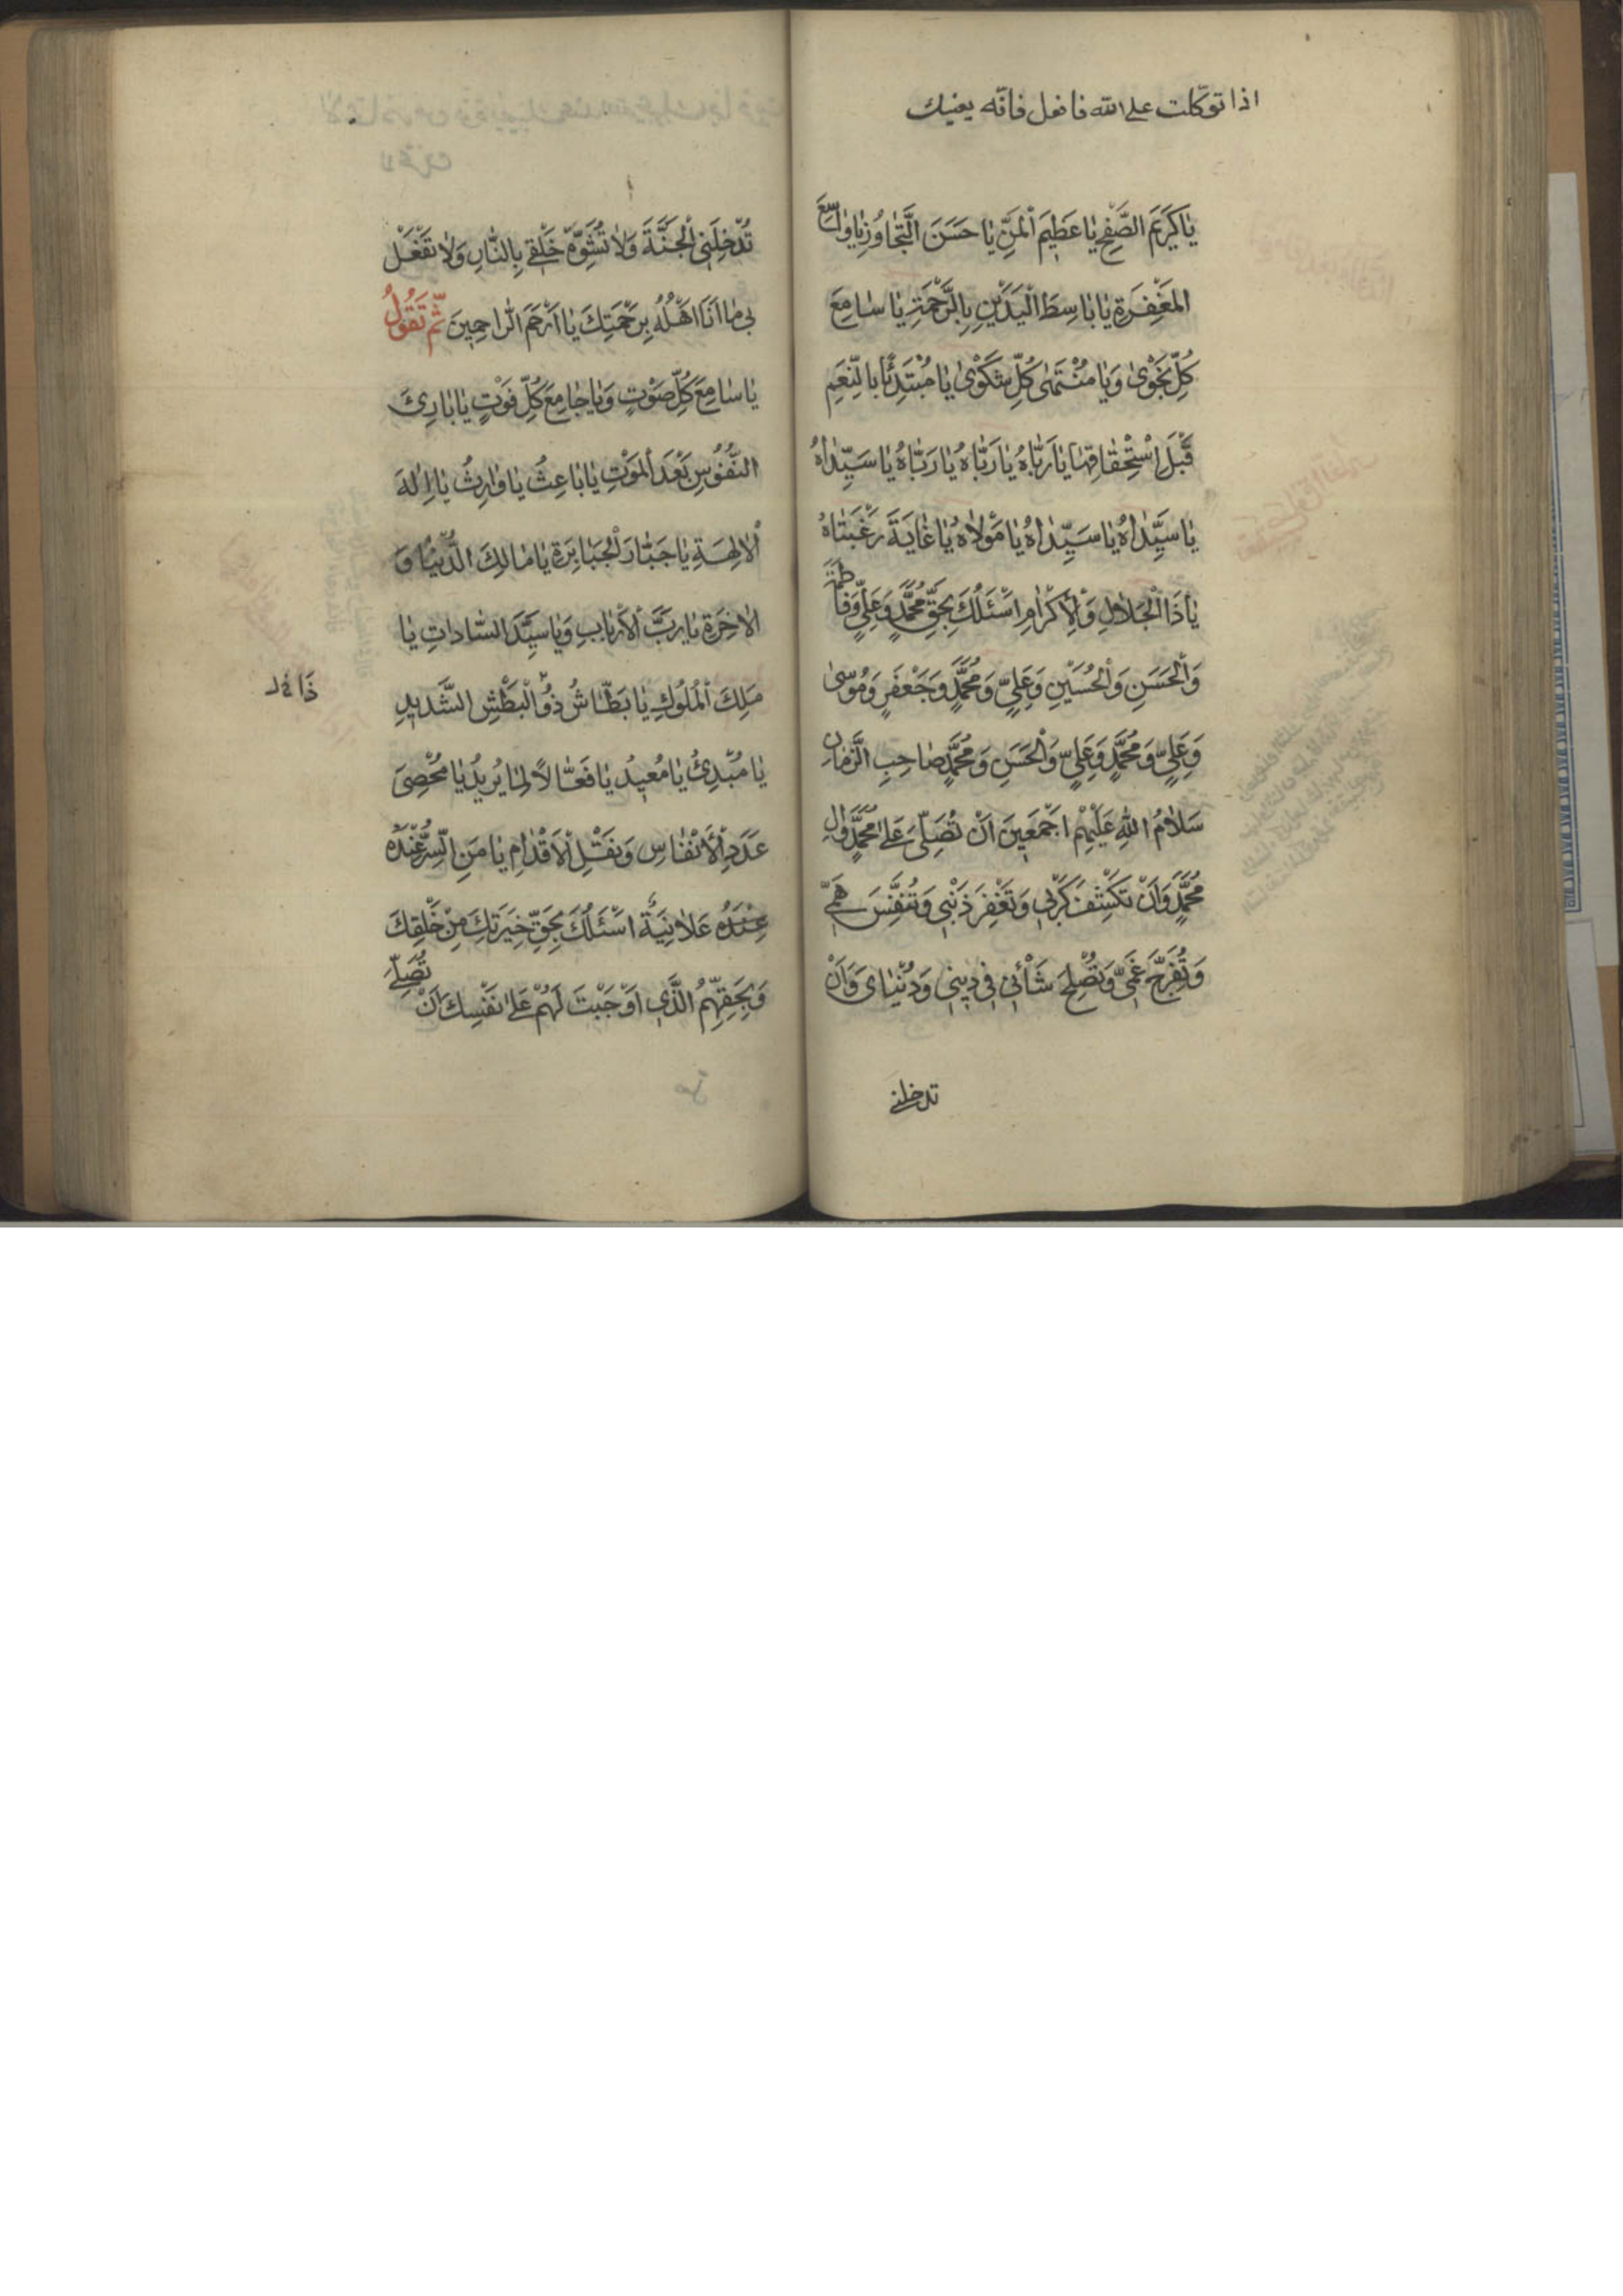 اذا توكّلت على الله فا فعل فانّه يعنيك
يٰا كَرٖيمَ الصَّفْحِ يٰا عَظٖيمَ الْمَنِّ يٰا حَسَنَ التَّجٰاوُزِ يٰا وٰاسِعَ
المَغْفِرَةِ يٰا بٰاسِطَ الْيَدَيْنِ بِالرَّحْمَةِ يٰا سٰامِعَ
كُلِّ نَجْوىٰ وَيٰا مُنْتَهىٰ كُلِّ شَكْوىٰ يٰا مُبْتَدِئًا بِالنِّعَمِ
قَبْلَ اسْتِحْقٰاقِهٰا يٰا رَبّٰاهُ يٰا رَبّٰاهُ يٰا رَبّٰاهُ يٰا سَيِّدٰاهُ
يٰا سَيِّدٰاهُ يٰا سَيِّدٰاهُ يٰا مَوْلٰاهُ يٰا غٰايَةَ رَغْبَتٰاهُ
يٰا ذَا الْجَلٰالِ وَالْاِكْرٰامِ اَسْئَلُكَ بِحَقِّ مُحَمَّدٍ وَعَلِيٍّ وَفٰاطِمَةَ
وَالْحَسَنِ وَالْحُسَيْنِ وَعَلِيٍّ وَمُحَمَّدٍ وَجَعْفَرٍ وَمُوسىٰ
وَعَلِيٍّ وَمُحَمَّدٍ وَعَلِيٍّ وَالْحَسَنِ وَمُحَمَّدٍ صٰاحِبِ الزَّمٰانِ
سَلٰامُ اللّٰهِ عَلَيْهِمْ اَجْمَعٖينَ اَنْ تُصَلِّيَ عَلىٰ مُحَمَّدٍ وَاٰلِ
مُحَمَّدٍ وَاَنْ تَكْشِفَ كَرْبٖي وَتَغْفِرَ ذَنْبٖي وَتُنَفِّسَ هَمّٖي
وَتُفَرِّجَ غَمّٖي وَتُصْلِحَ شَأْنٖي فٖي دٖينٖي وَدُنْيٰايَ وَاَنْ
تدخلني
تُدْخِلَنِي الْجَنَّةَ وَلٰا تُشَوِّهَ خَلْقٖي بِالنّٰارِ وَلٰا تَفْعَلْ
بٖي مٰا اَنَا اَهْلُهُ بِرَحْمَتِكَ يٰا اَرْحَمَ الرّٰاحِمٖينَ ثُمَّ تَقُولُ
يٰا سٰامِعَ كُلِّ صَوْتٍ وَيٰا جٰامِعَ كُلِّ فَوْتٍ يٰا بٰارِئَ
النُّفُوسِ بَعْدَ الْمَوْتِ يٰا بٰاعِثُ يٰا وٰارِثُ يٰا اِلٰهَ
الْاٰلِهَةِ يٰا جَبّٰارَ الْجَبٰابِرَةِ يٰا مٰالِكَ الدُّنْيٰا وَ
الْاٰخِرَةِ يٰا رَبَّ الْاَرْبٰابِ وَيٰا سَيِّدَ السّٰادٰاتِ يٰا
مَلِكَ الْمُلُوكِ يٰا بَطّٰاشُ ذُو الْبَطْشِ الشَّدٖيدِ
يٰا مُبْدِئُ يٰا مُعٖيدُ يٰا فَعّٰالًا لِمٰا يُرٖيدُ يٰا مُحْصِيَ
عَدَدِ الْاَنْفٰاسِ وَنَقْلِ الْاَقْدٰامِ يٰا مَنِ السِّرُّ عِنْدَهُ
عِنْدَهُ عَلٰانِيَةٌ اَسْئَلُكَ بِحَقِّ خِيَرَتِكَ مِنْ خَلْقِكَ
وَبِحَقِّهِمُ الَّذٖي اَوْجَبْتَ لَهُمْ عَلىٰ نَفْسِكَ اَنْ تُصَلِّيَ